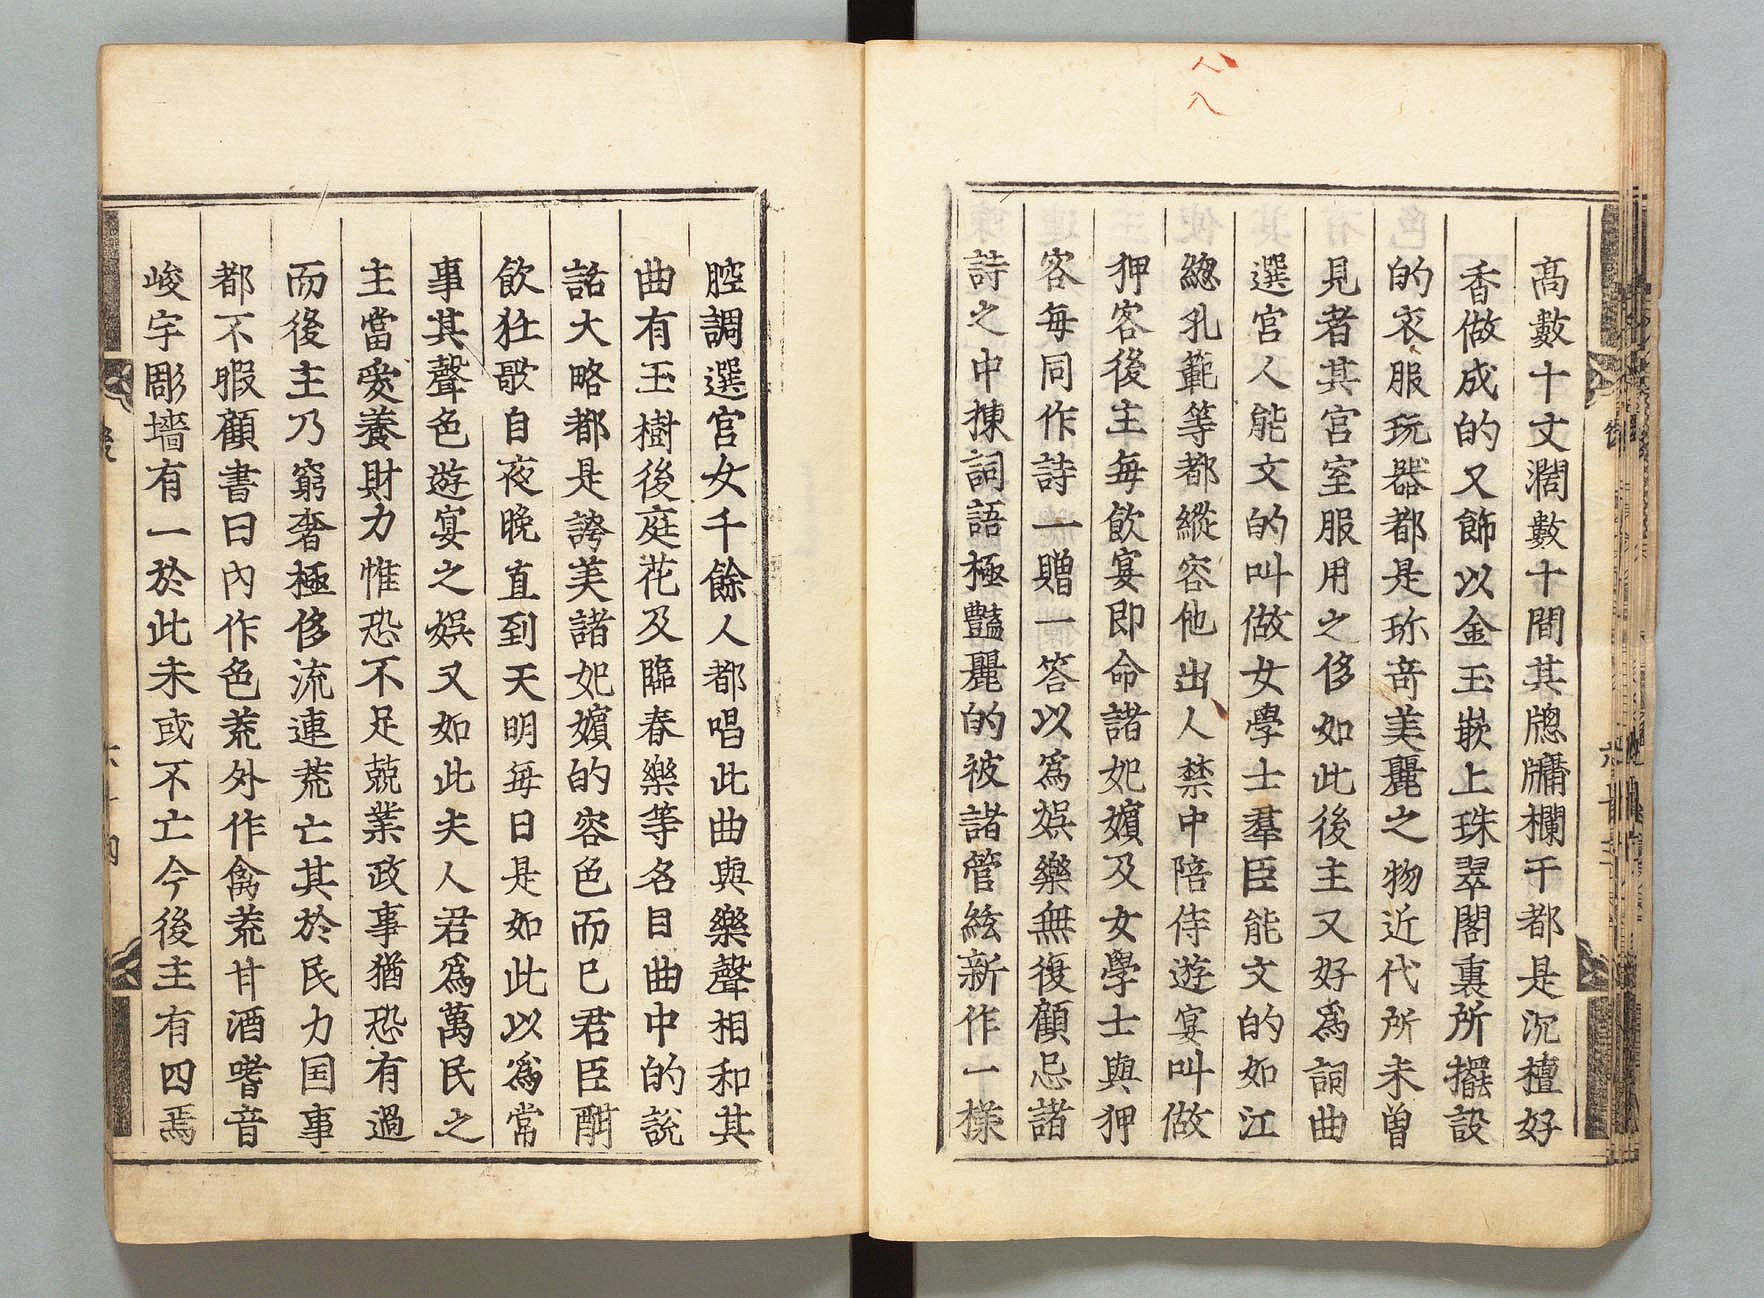 高數十丈濶數十間其牕牗欄干都是沉檀好
香做成的又飾以金玉嵌上珠翠閣裏所擺設
的衣服玩器都是珎竒美麗之物近代所未曾
見者其宮室服用之侈如此後主又好爲詞曲
選宮人能文的叫做女學士羣臣能文的如江
總孔範等都縱容他出人禁中陪侍遊宴叫做
狎客後主每飲宴即命諸妃嬪及女學士與狎
客每同作詩一贈一答以爲娛樂無復顧忌諸
詩之中揀詞語極豔麗的被諸管絃新作一樣
腔調選宮女千餘人都唱此曲與樂聲相和其
曲有玉樹後庭花及臨春樂等名目曲中的說
話大略都是誇美諸妃嬪的容色而已君臣酣
飲狂歌自夜晚直到天明每日是如此以爲常
事其聲色遊宴之娛又如此夫人君爲萬民之
主當愛養財力惟恐不足兢業政事猶恐有過
而後主乃窮奢極侈流連荒亡其於民力国事
都不暇顧書曰內作色荒外作禽荒甘酒嗜音
峻宇彫墻有一於此未或不亡今後主有四焉